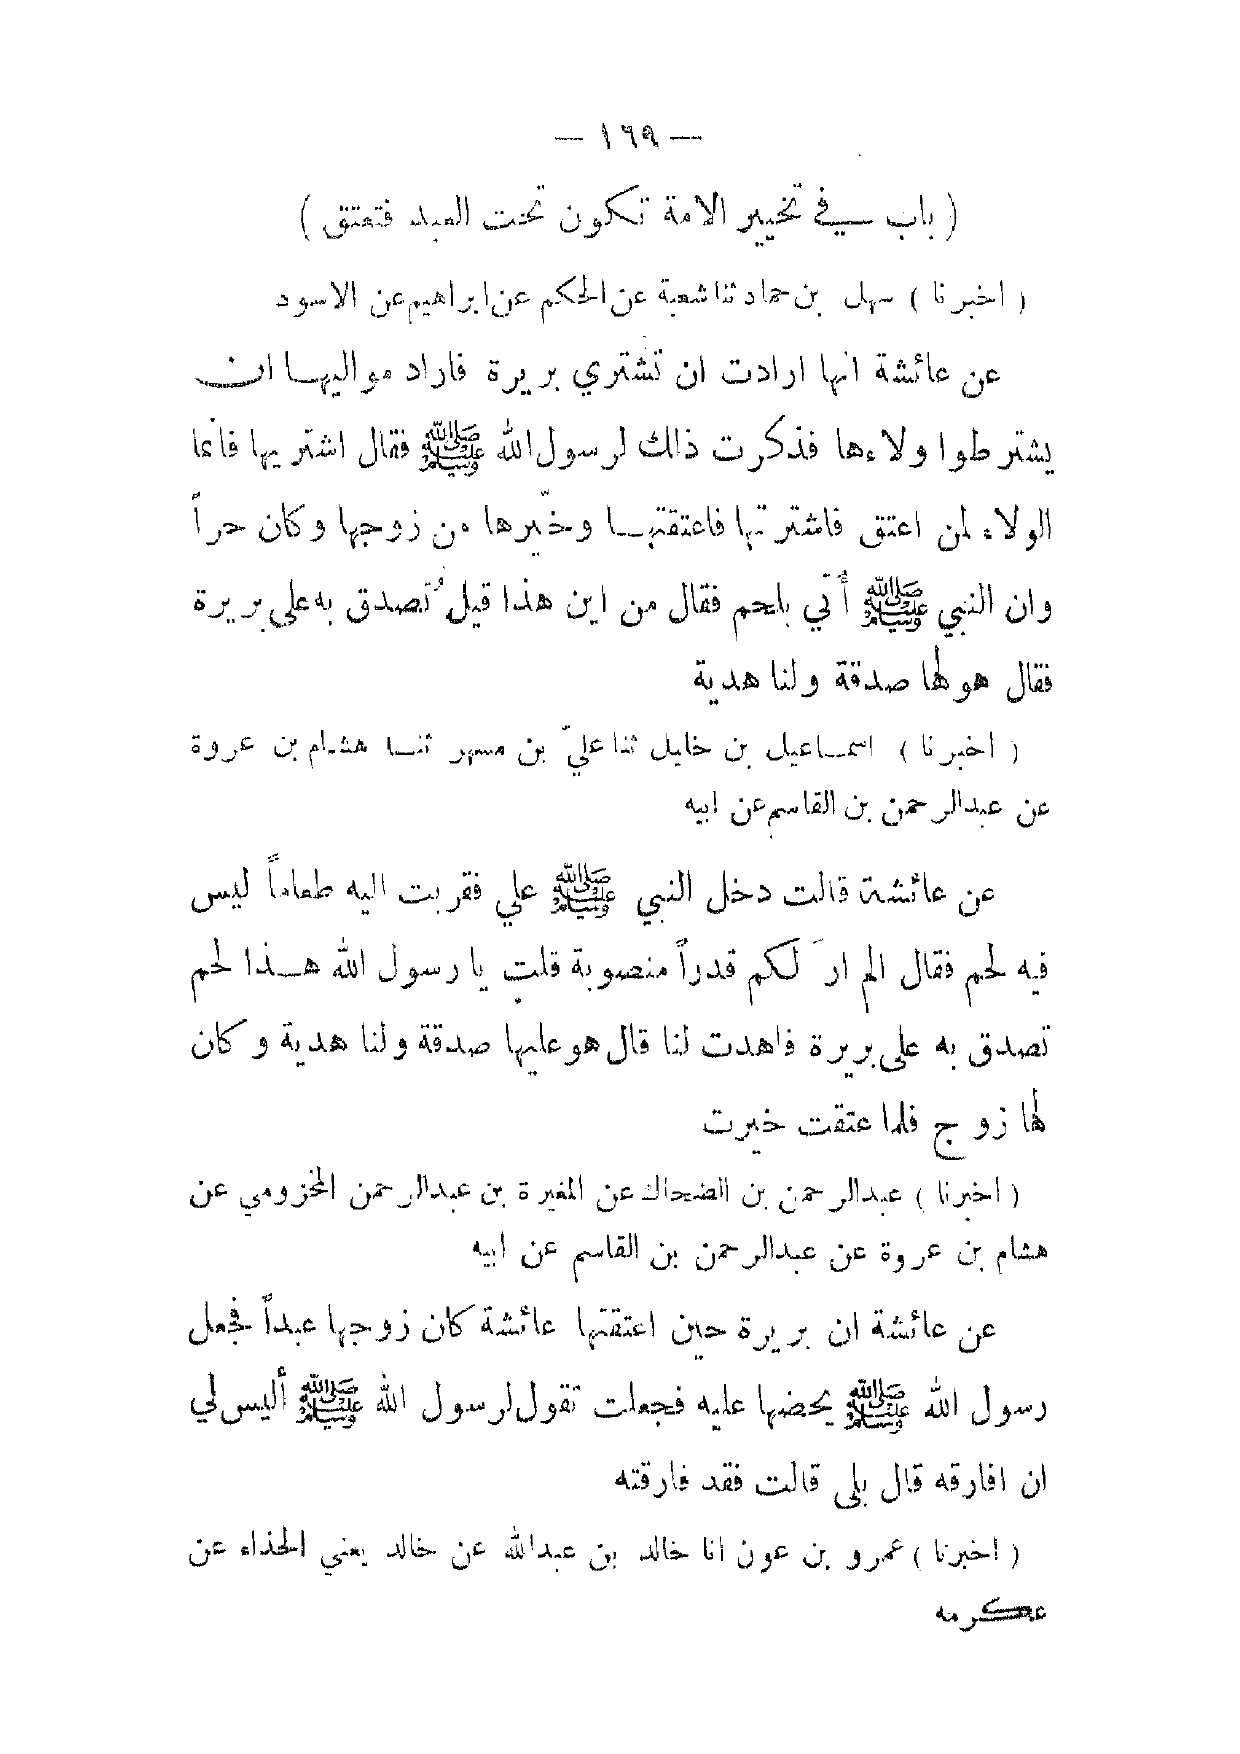 — ١٦٩ —
( باب في تخيير الامة تكون تحت العبد فتعتق )
( اخبرنا ) سهل بن حماد ثنا شعبة عن الحكم عن ابراهيم عن الاسود
عن عائشة انها ارادت ان تشتري بريرة فاراد مواليها ان
يشترطوا ولاءها فذكرت ذلك لرسول الله ﷺ فقال اشتريها فانما
الولاء لمن اعتق فاشترتها فاعتقتها وخيّرها من زوجها وكان حراً
وان النبي ﷺ أُتي بلحم فقال من اين هذا قيل تُصدق به على بريرة
فقال هو لها صدقة ولنا هدية
( اخبرنا ) اسماعيل بن خليل ثنا عليّ بن مسهر ثنا هشام بن عروة
عن عبدالرحمن بن القاسم عن ابيه
عن عائشة قالت دخل النبي ﷺ علي فقربت اليه طعاماً ليس
فيه لحم فقال الم ارَ لكم قدراً منصوبة قلت يا رسول الله هذا لحم
تصدق به على بريرة فاهدت لنا قال هو عليها صدقة ولنا هدية وكان
لها زوج فلما عتقت خيرت
( اخبرنا ) عبدالرحمن بن الضحاك عن المغيرة بن عبدالرحمن المخزومي عن
هشام بن عروة عن عبدالرحمن بن القاسم عن ابيه
عن عائشة ان بريرة حين اعتقتها عائشة كان زوجها عبداً فجعل
رسول الله ﷺ يحضها عليه فجعلت تقول لرسول الله ﷺ أليس لي
ان افارقه قال بلى قالت فقد فارقته
( اخبرنا ) عمرو بن عون انا خالد بن عبدالله عن خالد يعني الحذاء عن
عكرمه